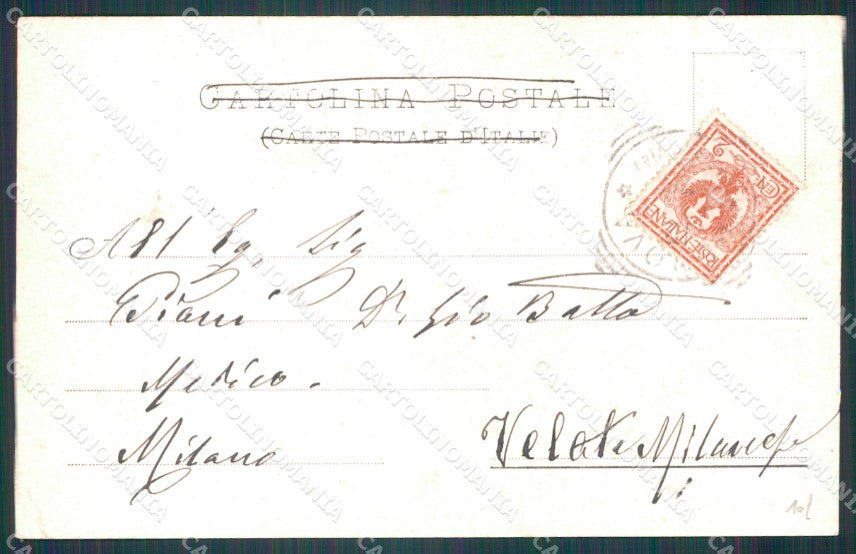 CARTOLINA POSTALE
(CARTE POSTALE D'ITALIE)
POSTE ITALIANE
2
CEN
All Eg. Sig
Piani Dr Gio Batta
Medico.
Milano
Velate Milanese
CARTOLINOMANIA